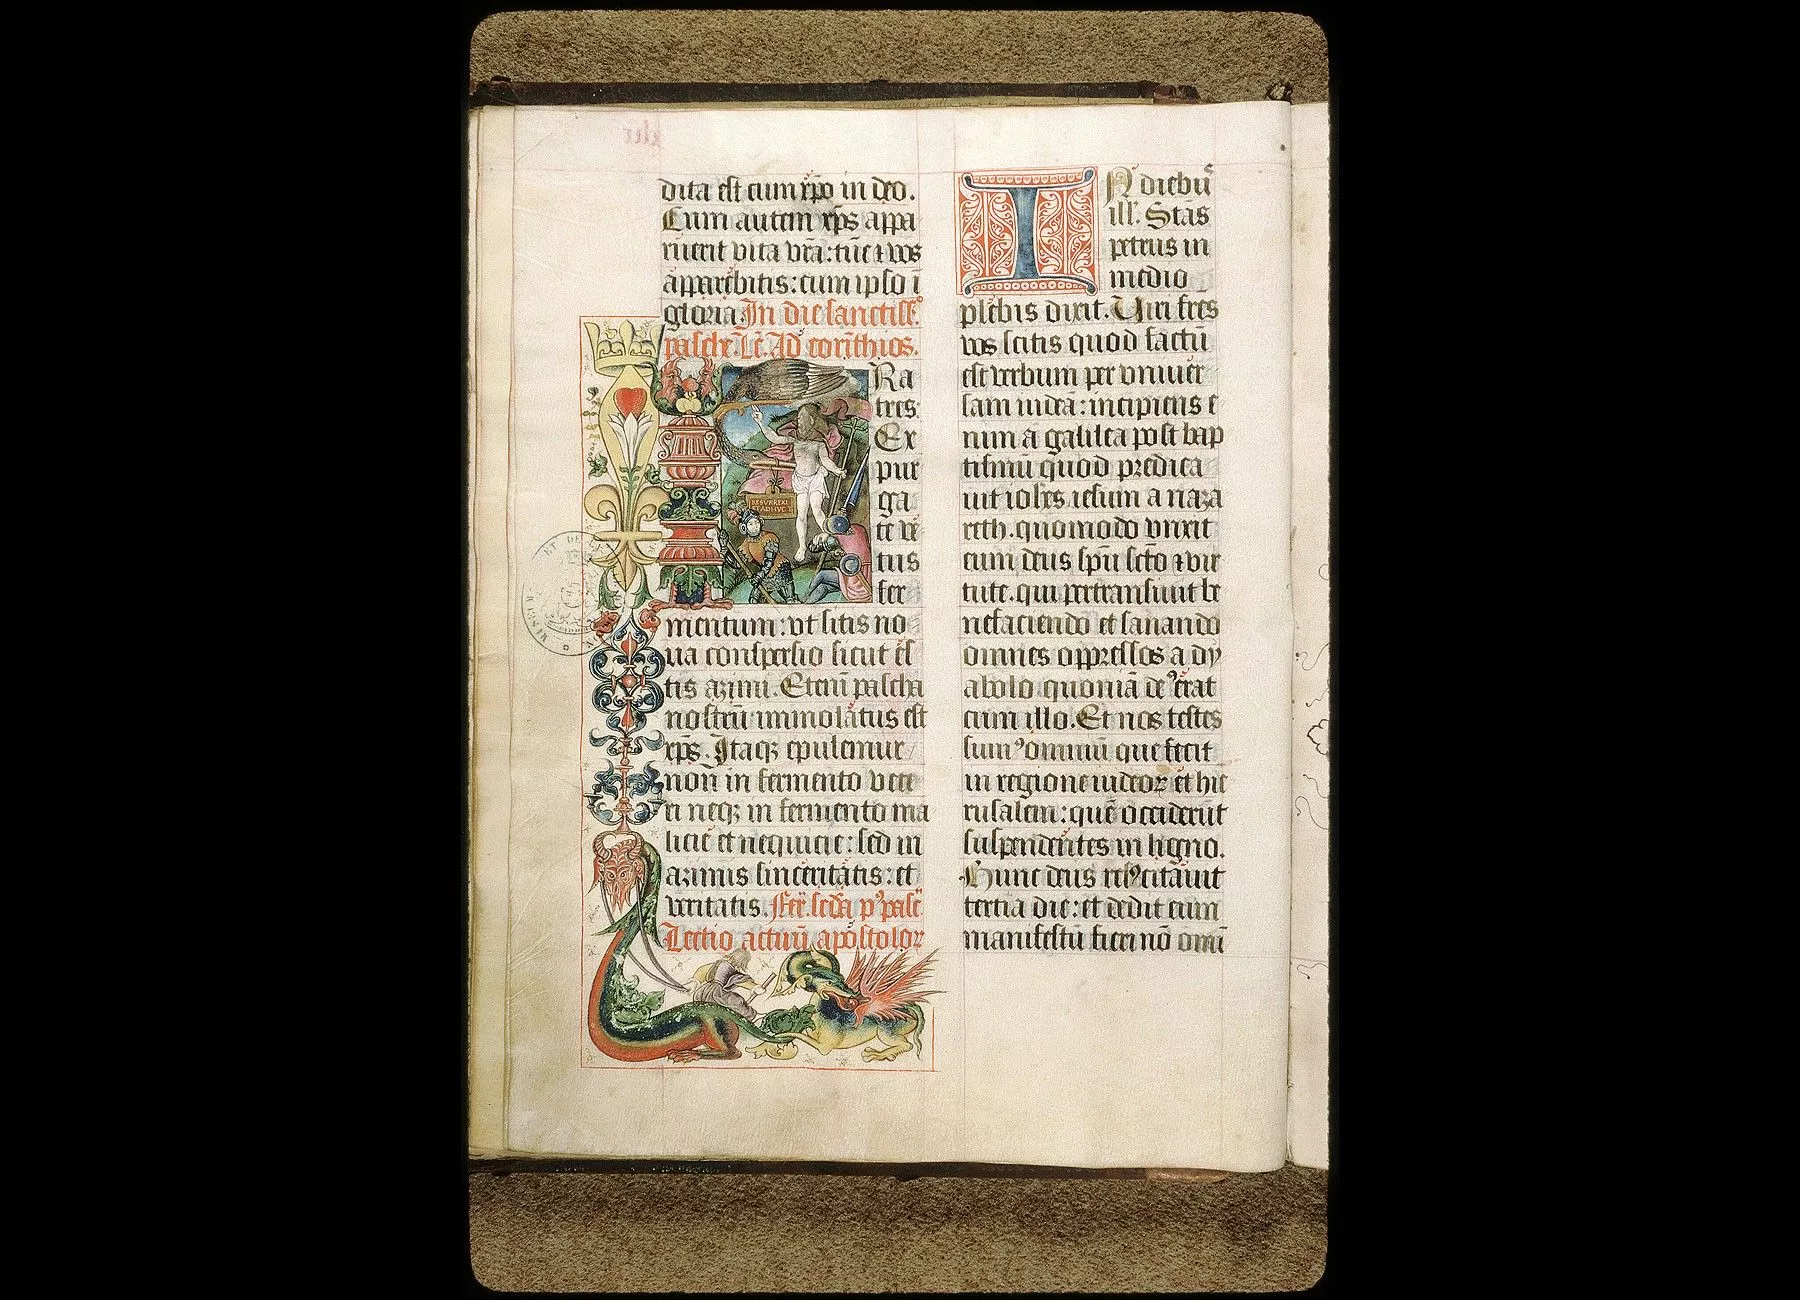 dita est cum xp̄o in deo.
Cum autem xp̄s appa
ruerit vita vr̄a: tūc ⁊ vos
apparebitis: cum ipso ī
gloria. In die sanctiss.
pasche. Lc̄. Ad corīthios.
Ra
tres
Ex
pur
ga
te ve
tus
fer
mentum: vt sitis no
ua conspersio sicut es
tis azimi. Etenī pascha
nostrū immolatus est
xp̄s. Itaqꝫ epulemur
non in fermento vete
ri neqꝫ in fermento ma
licie et nequicie: sed in
azimis sinceritatis: et
veritatis. Fer. scd̄a pꝰ pasc̄
Lectio actuū apostoloꝝ
RESVRREXI
ET ADHVC T
IN diebꝰ
ill̄. Stās
petrus in
medio
plebis dixit. Uiri fr̄es
vos scitis quod factū
est verbum per vniuer
sam iudeā: incipiens e
nim a galilea post bap
tismū quod predica
uit ioh̄es iesum a naza
reth. quomodo vnxit
eum deus sp̄u sc̄to ⁊ vir
tute. qui pertransiuit be
nefaciendo et sanando
omnes oppressos a dy
abolo quoniā deꝰ erat
cum illo. Et nos testes
sumꝰ omniū que fecit
in regione iudeoꝝ et hie
rusalem: quē occiderūt
suspendentes in ligno.
Hunc deus resꝰcitauit
tertia die: et dedit eum
manifestū fieri nō omī